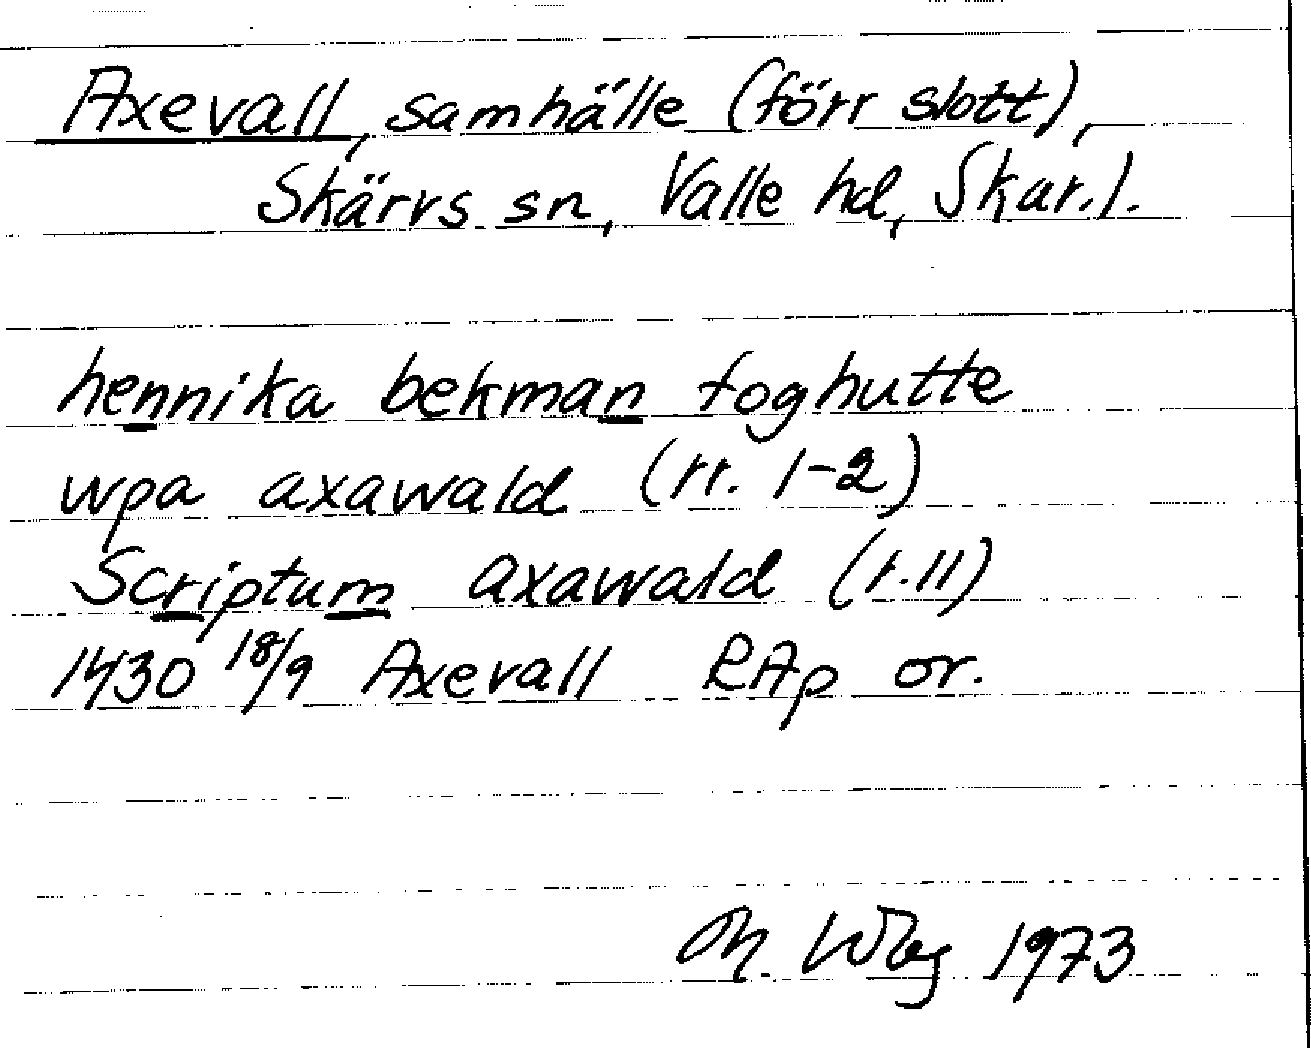 Axevall, samhälle (förr slott),
Skärvs sn, Valle hd, Skar.l.
hennika bekman foghutte
wpa axawald (rr. 1-2)
Scriptum axawald (r.11)
1430 18/9 Axevall RAp or.
1973